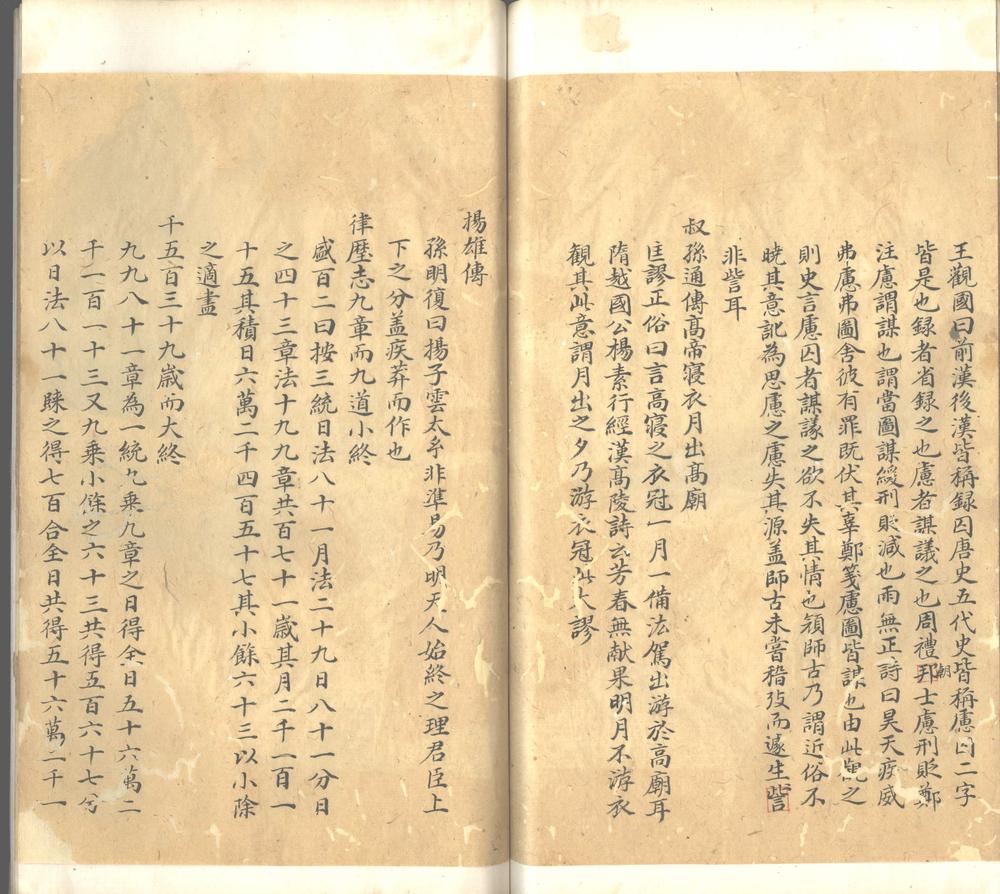 王觀國曰前漢後漢皆稱録囚唐史五代史皆稱慮囚二字
皆是也録者省録之也慮者謀議之也周禮邦朝士慮刑貶鄭
注慮謂謀也謂當圖謀緩刑貶減也雨無正詩曰昊天疾威
弗慮弗圖舍彼有罪既伏其辜鄭箋慮圖皆謀也由此觀之
則史言慮囚者謀議之欲不失其情也顔師古乃謂近俗不
曉其意訛為思慮之慮失其源盖師古未嘗稽攷而遽生訾
非訾耳
叔孫通傳髙帝寝衣月出髙廟
匡謬正俗曰言高寝之衣冠一月一備法駕出游於高廟耳
隋越國公楊素行經漢髙陵詩云芳春無献果明月不游衣
觀其此意謂月出之夕乃游衣冠此大謬
揚雄傳
孫明復曰揚子雲太玄非準易乃明天人始終之理君臣上
下之分盖疾莽而作也
律歴志九章而九道小終
盛百二曰按三統日法八十一月法二十九日八十一分日
之四十三章法十九九章共百七十一歲其月二千一百一
十五其積日六萬二千四百五十七其小餘六十三以小除
之適盡
千五百三十九歲而大終
九九八十一章為一統九乘九章之日得全日五十六萬二
千一百一十三又九乘小餘之六十三共得五百六十七分
以日法八十一除之得七百合全日共得五十六萬二千一